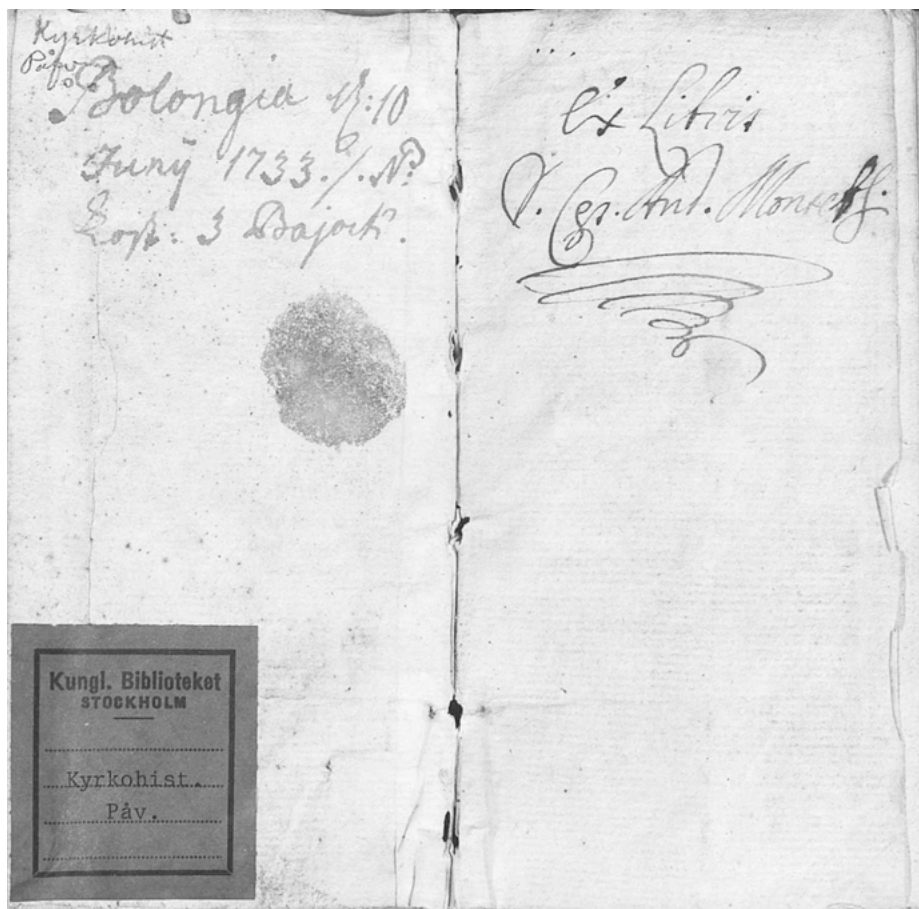 Kyrkohist
Påv
Bolongia d: 10
Junÿ 1733. /. N?
Kost: 3 Bajock?.
Kungl. Biblioteket
STOCKHOLM
Kyrkohist.
Påv.
Ex Libris
And.